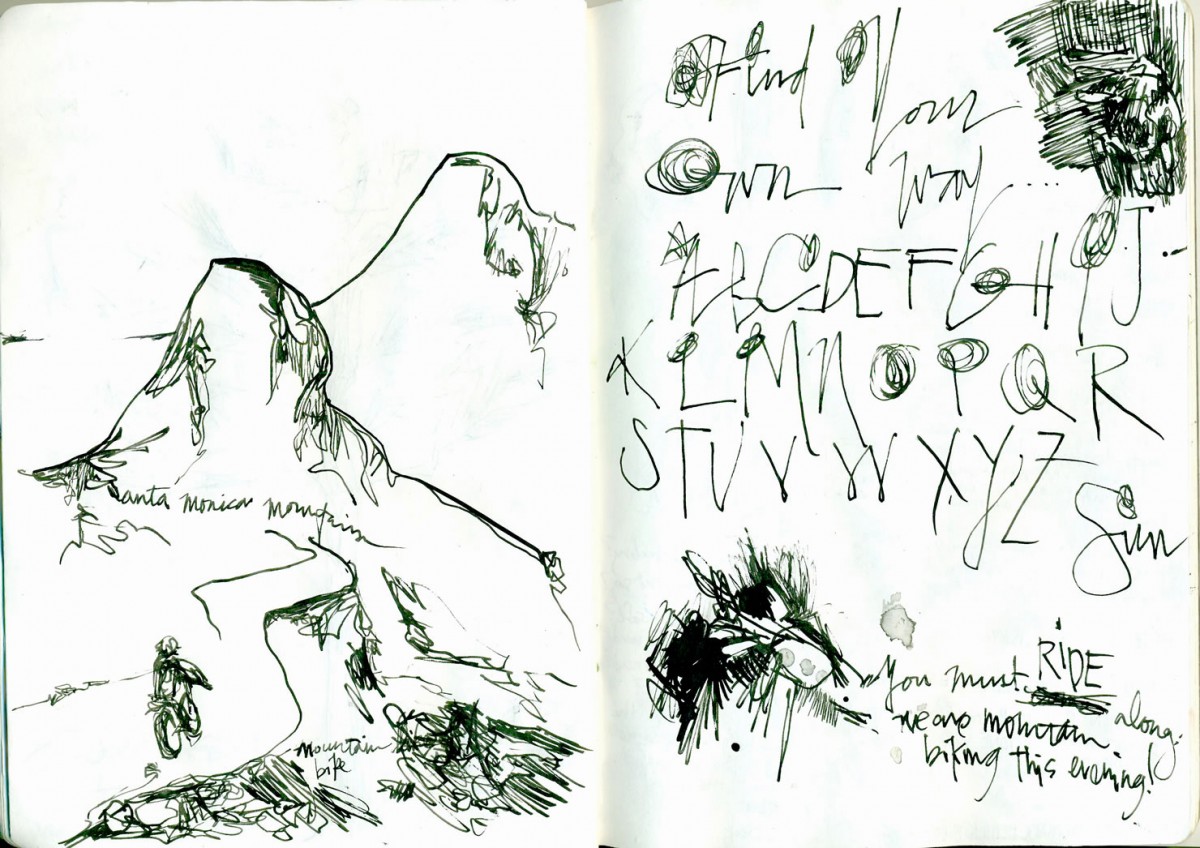 Santa Monica Mountains
mountain
bike
Find Your
Own way....
ABCDEFGHIJ
KLMNOPQR
STUVWXYZ
Sun
You must RIDE
along.
we are mountain
biking this evening!